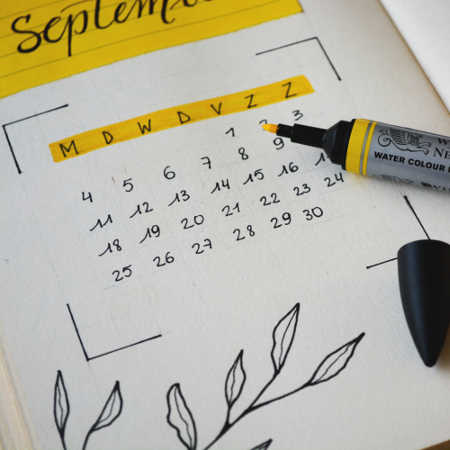 September
M D W D V Z Z
1 2 3
4 5 6 7 8 9
11 12 13 14 15 16
18 19 20 21 22 23 24
25 26 27 28 29 30
WATER COLOUR